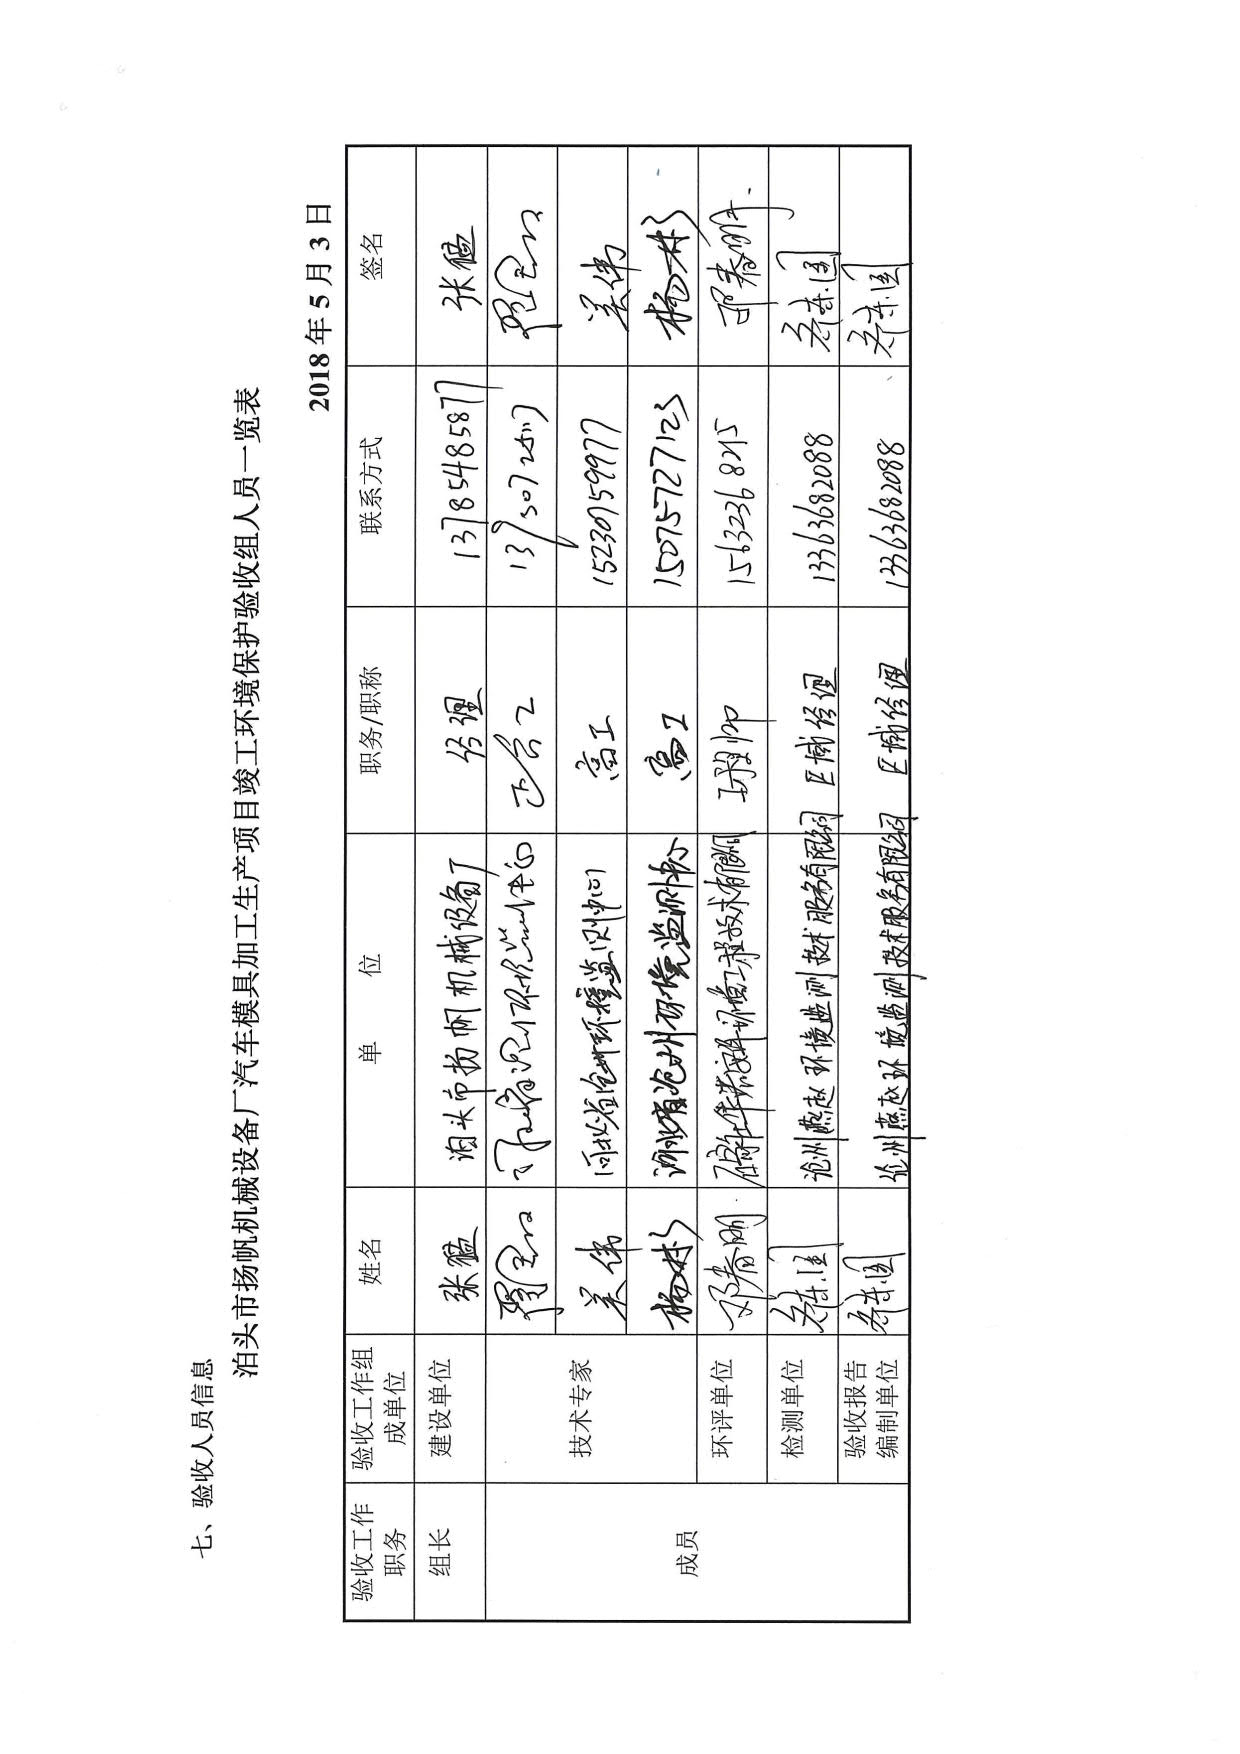 七、验收人员信息
泊头市扬帆机械设备厂汽车模具加工生产项目竣工环境保护验收组人员一览表
2018年5月3日
验收工作职务 验收工作组成单位 姓名 单位 职务/职称 联系方式 签名
组长 建设单位 张猛 泊头市扬帆机械设备厂 经理 13785485877 张猛
成员 技术专家 正高工
姜伟 河北省沧州环境监测中心 高工 15230759977 姜伟
杨彬 河北省沧州环境监测中心 高工 15075727123 杨彬
环评单位 邓春明 工程师 15632368215 邓春明
检测单位 沧州燕赵环境监测技术服务有限公司 区域经理 13363682088
验收报告编制单位 沧州燕赵环境监测技术服务有限公司 区域经理 13363682088